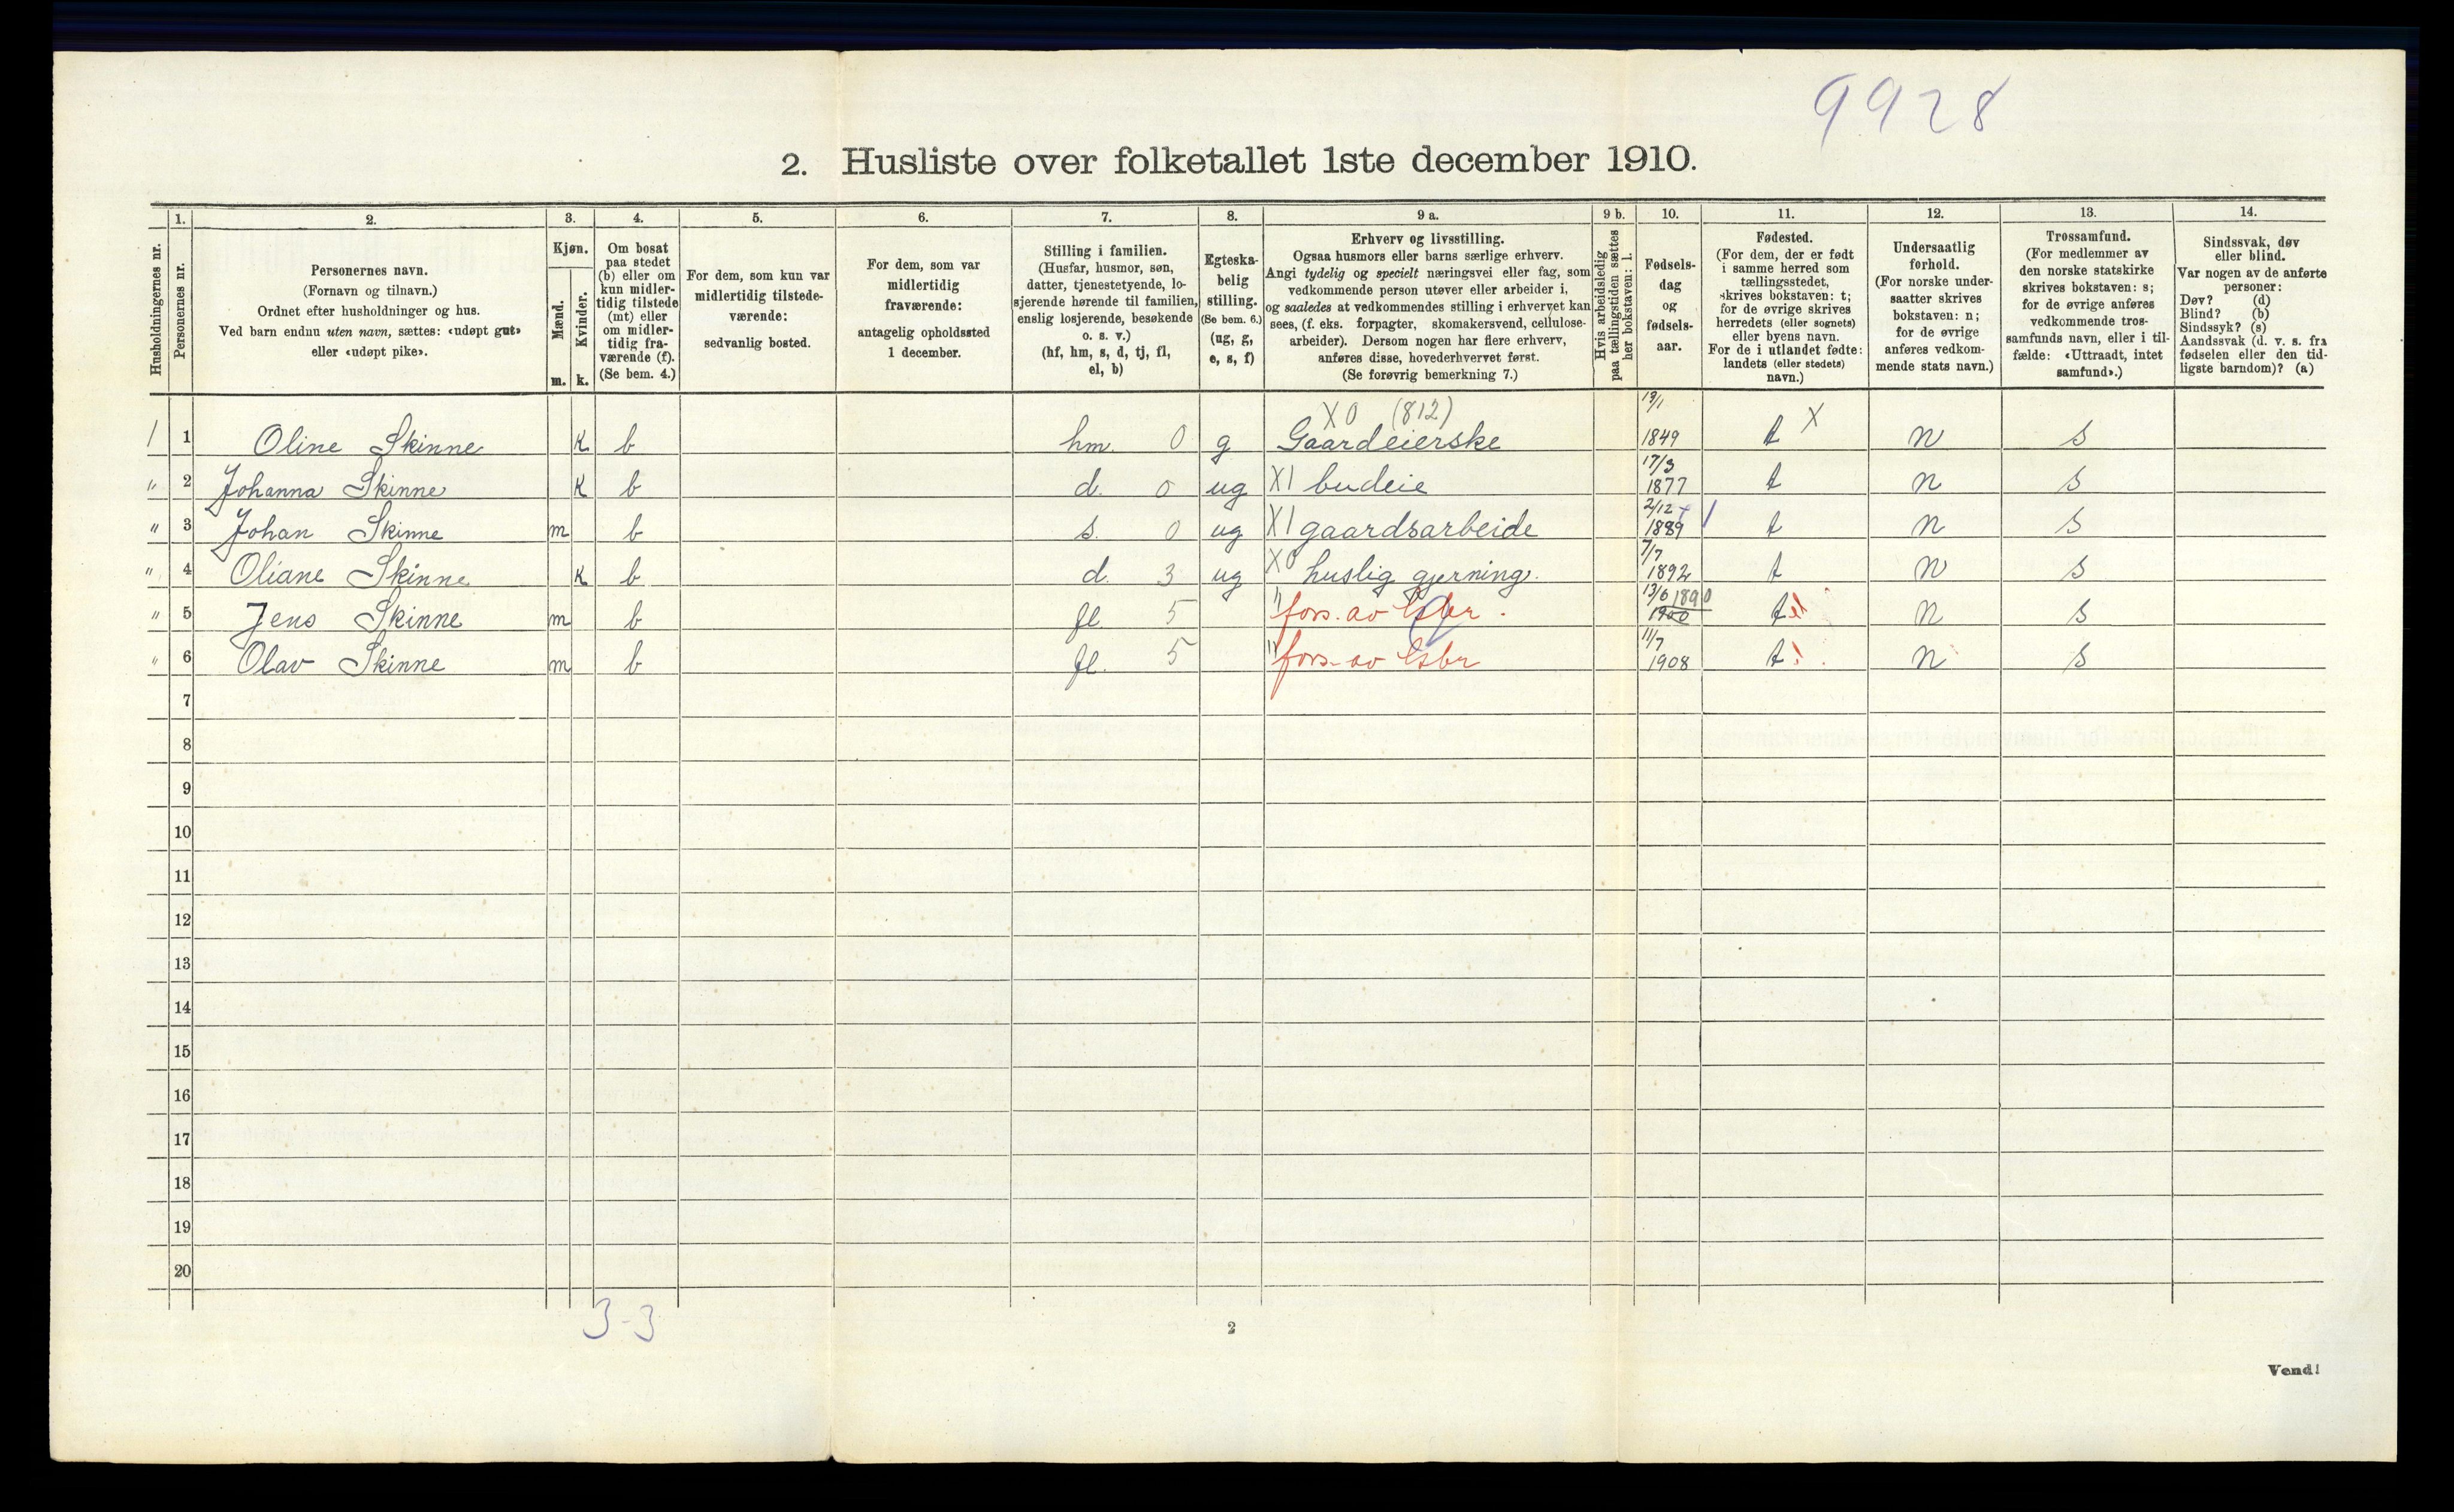 9928
2. Husliste over folketallet 1ste december 1910.
Husholdningernes nr.
1.
Personernes nr.
2.
Personernes navn.
(Fornavn og tilnavn.)
Ordnet efter husholdninger og hus.
Ved barn endnu uten navn, sættes: «udøpt gut»
eller «udøpt pike».
3.
Kjøn.
Mænd.
Kvinder.
m. k.
4.
Om bosat
paa stedet
(b) eller om
kun midler-
tidig tilstede
(mt) eller
om midler-
tidig fra-
værende (f).
(Se bem. 4.)
5.
For dem, som kun var
midlertidig tilstede-
værende:
sedvanlig bosted.
6.
For dem, som var
midlertidig
fraværende:
antagelig opholdssted
1 december.
7.
Stilling i familien.
(Husfar, husmor, søn,
datter, tjenestetyende, lo-
sjerende hørende til familien,
enslig losjerende, besøkende
o. s. v.)
(hf, hm, s, d, tj, fl,
el, b)
8.
Egteska-
belig
stilling.
(Se bem. 6.)
(ug, g,
e, s, f)
9 a.
Erhverv og livsstilling.
Ogsaa husmors eller barns særlige erhverv.
Angi tydelig og specielt næringsvei eller fag, som
vedkommende person utøver eller arbeider i,
og saaledes at vedkommendes stilling i erhvervet kan
sees, (f. eks. forpagter, skomakersvend, cellulose-
arbeider). Dersom nogen har flere erhverv,
anføres disse, hovederhvervet først.
(Se forøvrig bemerkning 7.)
9 b.
Hvis arbeidsledig
paa tællingstiden sættes
her bokstaven: l.
10.
Fødsels-
dag
og
fødsels-
aar.
11.
Fødested.
(For dem, der er født
i samme herred som
tællingsstedet,
skrives bokstaven: t;
for de øvrige skrives
herredets (eller sognets)
eller byens navn.
For de i utlandet fødte:
landets (eller stedets)
navn.)
12.
Undersaatlig
forhold.
(For norske under-
saatter skrives
bokstaven: n;
for de øvrige
anføres vedkom-
mende stats navn.)
13.
Trossamfund.
(For medlemmer av
den norske statskirke
skrives bokstaven: s;
for de øvrige anføres
vedkommende tros-
samfunds navn, eller i til-
fælde: «Uttraadt, intet
samfund».)
14.
Sindssvak, døv
eller blind.
Var nogen av de anførte
personer:
Døv? (d)
Blind? (b)
Sindssyk? (s)
Aandssvak (d. v. s. fra
fødselen eller den tid-
ligste barndom)? (a)
X0 (812) 19/1
1 1 Oline Skinne K b hm. 0 g Gaardeierske 1849 t X n s
17/3
" 2 Johanna Skinne K b d. 0 ug X1 budeie 1877 t n s
2/12
" 3 Johan Skinne m b s. 0 ug X1 gaardsarbeide 1889 t n s
7/7
" 4 Oliane Skinne K b d. 3 ug X0 huslig gjerning. 1892 t n s
13/6 1890
" 5 Jens Skinne m b fl. 5 " fors. av 1900 t n s
11/7
" 6 Olav Skinne m b fl. 5 " fors. av 1908 t n s
7
8
9
10
11
12
13
14
15
16
17
18
19
20
3-3
2
Vend!